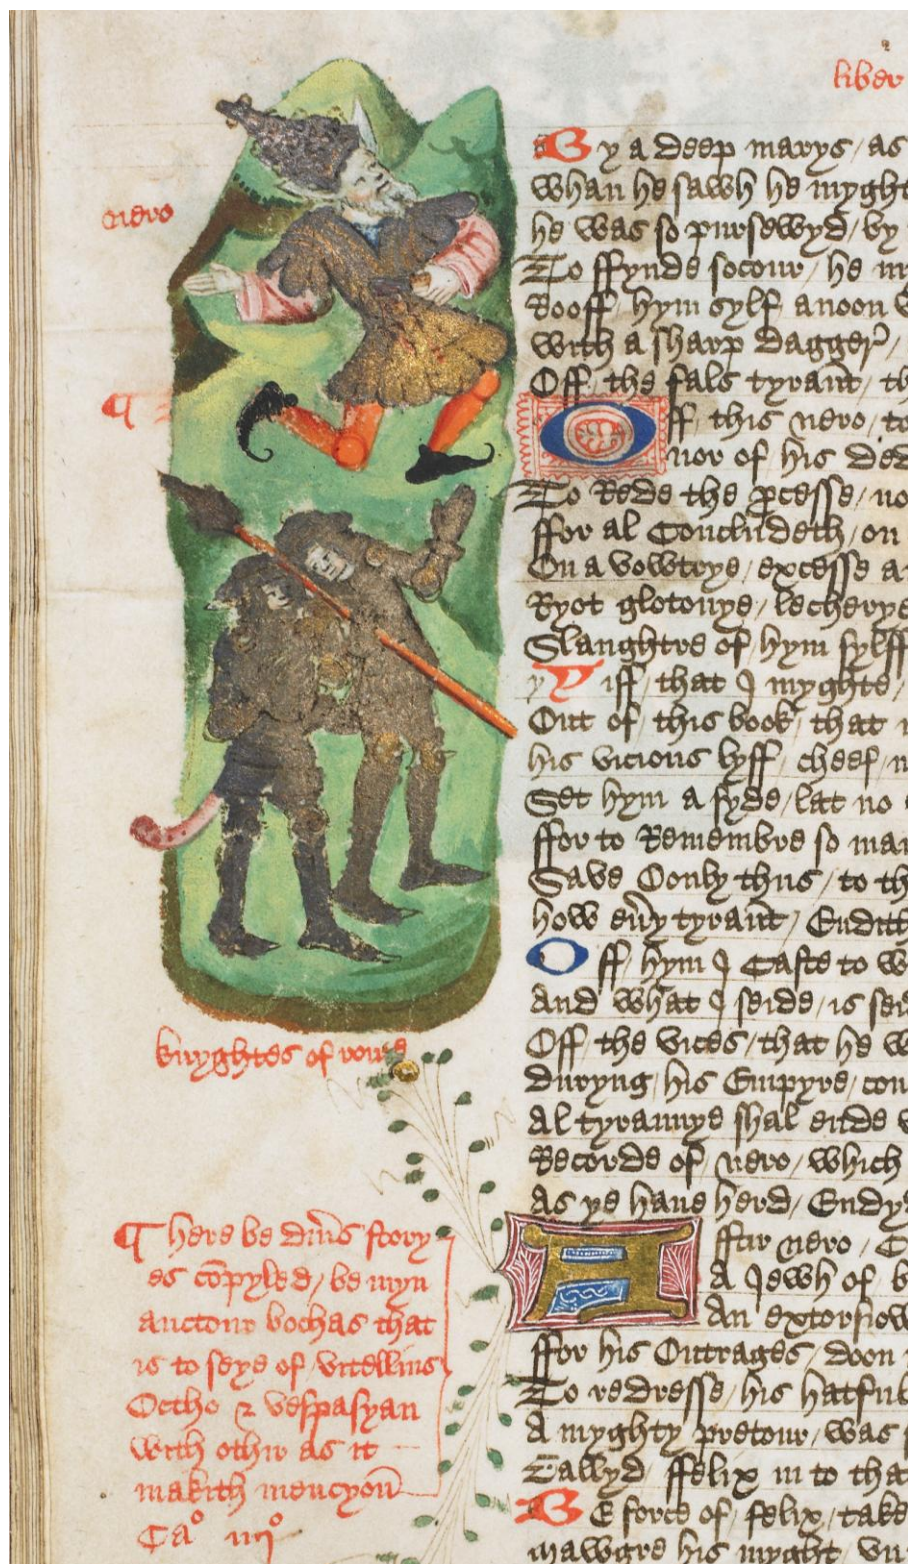 liber
nero
By a deep marys / as
whan he sawh he myght
he was so pursewyd / by
To ffynde socour / he
Rooff hym sylf anoon
with a sharp dagger /
Off the fals tyrant / th
Off this nero / to
nor of his ded
To Rede the pcesse / no
ffor al Concludeth / on
On a vowtrye / excesse
Ryot glotonye / lecherye
Slaughtre of hym sylff
yYiff that I myghte /
Out of this book that
his vicious lyff cheef
Set hym a syde / lat no
ffor to Remembre so
Save Oonly thus / to th
how eu'y tyrant / Endith
Off hym I Caste to w
And what I seide / is sei
Off the vices / that he w
duryng his Empyre / con
al tyrannye shal ende
Recorde of nero / which
as ye haue herd / Endy
knyghtes of rome
Afftir nero /
A Jewh of
An extorsiow
ffor his Outrages / doon
To redresse / his hatful
A myghty pretour / was
Callyd ffelix in to tha
BE force of felix / take
mawgre his myght
¶ here be diu's story
es co̅pyled / be myn
auctour bochas that
is to seye of vitellius
Octho & vespasyan
with othir as it
makith mencyon̅
Ca° iiij°